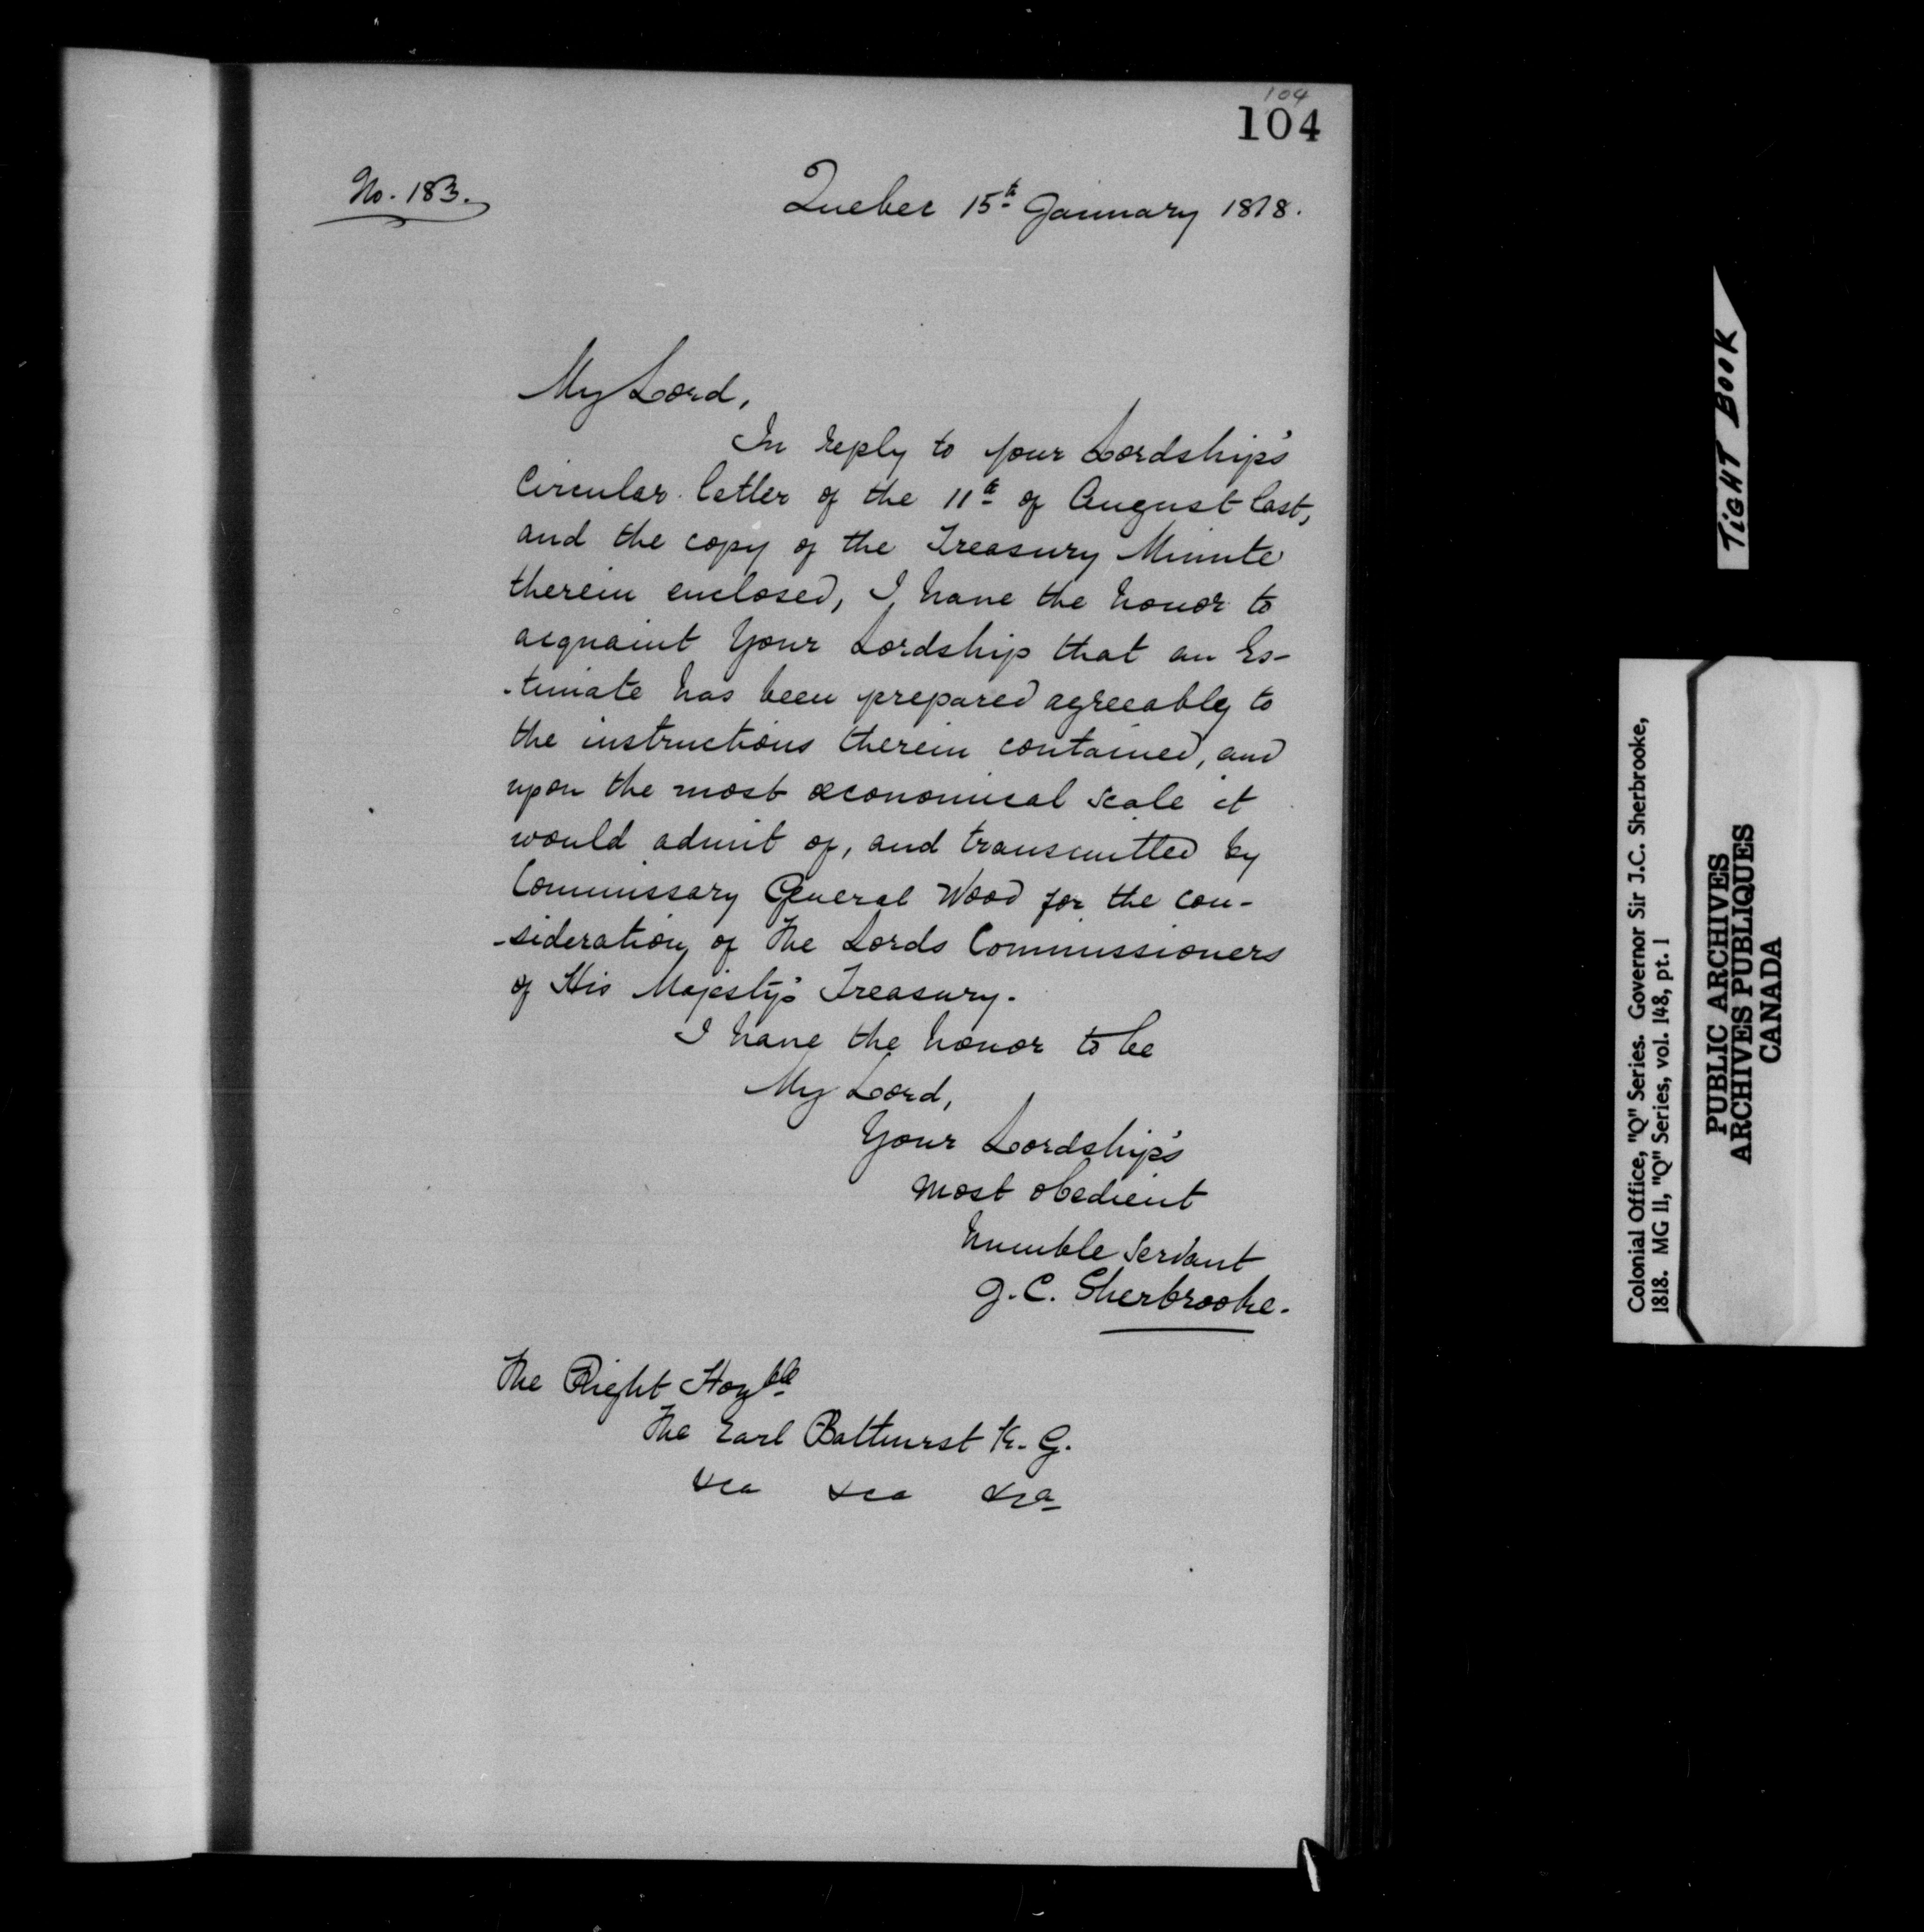 104
104
No. 183.
Quebec 15th January 1818.
My Lord,
In reply to Your Lordship's
Circular letter of the 11th of August last,
and the copy of the Treasury Minute
therein enclosed, I have the honor to
acquaint Your Lordship that an Es-
-timate has been prepared agreeably to
the instructions therein contained, and
upon the most œconomical scale it
would admit of, and transmitted by
Commissary General Wood for the con-
-sideration of The Lords Commissioners
of His Majesty's Treasury.
I have the honor to be
My Lord,
Your Lordship's
most obedient
humble Servant
J.C. Sherbrooke.
The Right Honble
The Earl Bathurst K.G.
&ca &ca &ca
TIGHT BOOK
Colonial Office, "Q" Series. Governor Sir J.C. Sherbrooke,
1818. MG 11, "Q" Series, vol. 148, pt. 1
PUBLIC ARCHIVES
ARCHIVES PUBLIQUES
CANADA